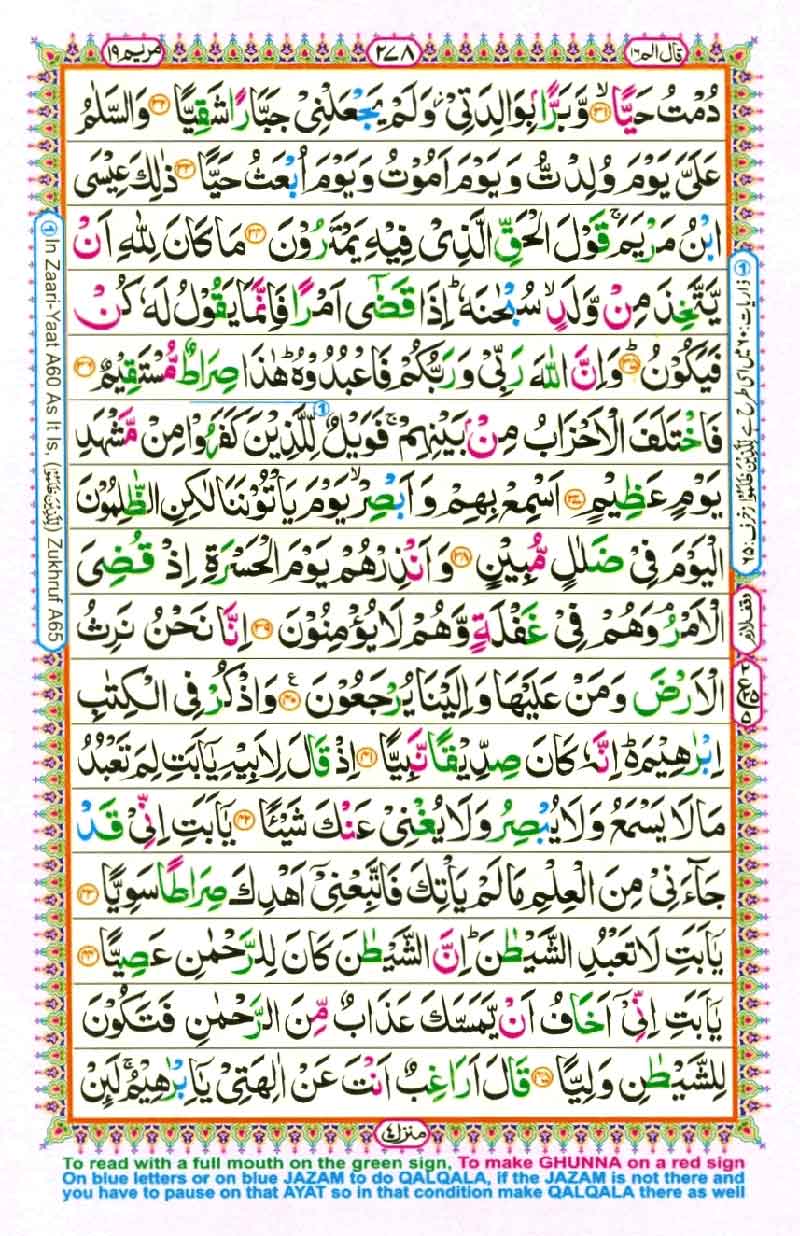 قال الم ١٦
٢٧٨
مريم ١٩
دُمْتُ حَيًّا ﴿٣١﴾ۙ وَّبَرًّۢا بِوَالِدَتِىْ ۚ وَلَمْ يَجْعَلْنِىْ جَبَّارًا شَقِيًّا ﴿٣٢﴾ وَالسَّلٰمُ
عَلَىَّ يَوْمَ وُلِدْتُّ وَيَوْمَ اَمُوْتُ وَيَوْمَ اُبْعَثُ حَيًّا ﴿٣٣﴾ ذٰلِكَ عِيْسَى
ابْنُ مَرْيَمَ ۚ قَوْلَ الْحَقِّ الَّذِىْ فِيْهِ يَمْتَرُوْنَ ﴿٣٤﴾ مَا كَانَ لِلّٰهِ اَنْ
يَّتَّخِذَ مِنْ وَّلَدٍ ۙ سُبْحٰنَهٗ ؕ اِذَا قَضٰٓى اَمْرًا فَاِنَّمَا يَقُوْلُ لَهٗ كُنْ
فَيَكُوْنُ ؕ﴿٣٥﴾ وَاِنَّ اللّٰهَ رَبِّىْ وَرَبُّكُمْ فَاعْبُدُوْهُ ؕ هٰذَا صِرَاطٌ مُّسْتَقِيْمٌ ﴿٣٦﴾
فَاخْتَلَفَ الْاَحْزَابُ مِنْۢ بَيْنِهِمْ ۚ فَوَيْلٌ لِّلَّذِيْنَ كَفَرُوْا مِنْ مَّشْهَدِ
يَوْمٍ عَظِيْمٍ ﴿٣٧﴾ اَسْمِعْ بِهِمْ وَاَبْصِرْ ۙ يَوْمَ يَاْتُوْنَنَا لٰكِنِ الظّٰلِمُوْنَ
الْيَوْمَ فِىْ ضَلٰلٍ مُّبِيْنٍ ﴿٣٨﴾ وَاَنْذِرْهُمْ يَوْمَ الْحَسْرَةِ اِذْ قُضِىَ
الْاَمْرُ ۘ وَهُمْ فِىْ غَفْلَةٍ وَّهُمْ لَا يُؤْمِنُوْنَ ﴿٣٩﴾ اِنَّا نَحْنُ نَرِثُ
الْاَرْضَ وَمَنْ عَلَيْهَا وَاِلَيْنَا يُرْجَعُوْنَ ﴿٤٠﴾ع وَاذْكُرْ فِى الْكِتٰبِ
اِبْرٰهِيْمَ ؕ اِنَّهٗ كَانَ صِدِّيْقًا نَّبِيًّا ﴿٤١﴾ اِذْ قَالَ لِاَبِيْهِ يٰۤاَبَتِ لِمَ تَعْبُدُ
مَا لَا يَسْمَعُ وَلَا يُبْصِرُ وَلَا يُغْنِىْ عَنْكَ شَيْئًا ﴿٤٢﴾ يٰۤاَبَتِ اِنِّىْ قَدْ
جَآءَنِىْ مِنَ الْعِلْمِ مَا لَمْ يَاْتِكَ فَاتَّبِعْنِىْۤ اَهْدِكَ صِرَاطًا سَوِيًّا ﴿٤٣﴾
يٰۤاَبَتِ لَا تَعْبُدِ الشَّيْطٰنَ ؕ اِنَّ الشَّيْطٰنَ كَانَ لِلرَّحْمٰنِ عَصِيًّا ﴿٤٤﴾
يٰۤاَبَتِ اِنِّىْۤ اَخَافُ اَنْ يَّمَسَّكَ عَذَابٌ مِّنَ الرَّحْمٰنِ فَتَكُوْنَ
لِلشَّيْطٰنِ وَلِيًّا ﴿٤٥﴾ قَالَ اَرَاغِبٌ اَنْتَ عَنْ اٰلِهَتِىْ يٰۤاِبْرٰهِيْمُ ۚ لَئِنْ
منزل ٤
وقف لازم
In Zaari-Yaat A60 As It Is, Zukhruf A65
To read with a full mouth on the green sign, To make GHUNNA on a red sign
On blue letters or on blue JAZAM to do QALQALA, if the JAZAM is not there and
you have to pause on that AYAT so in that condition make QALQALA there as well